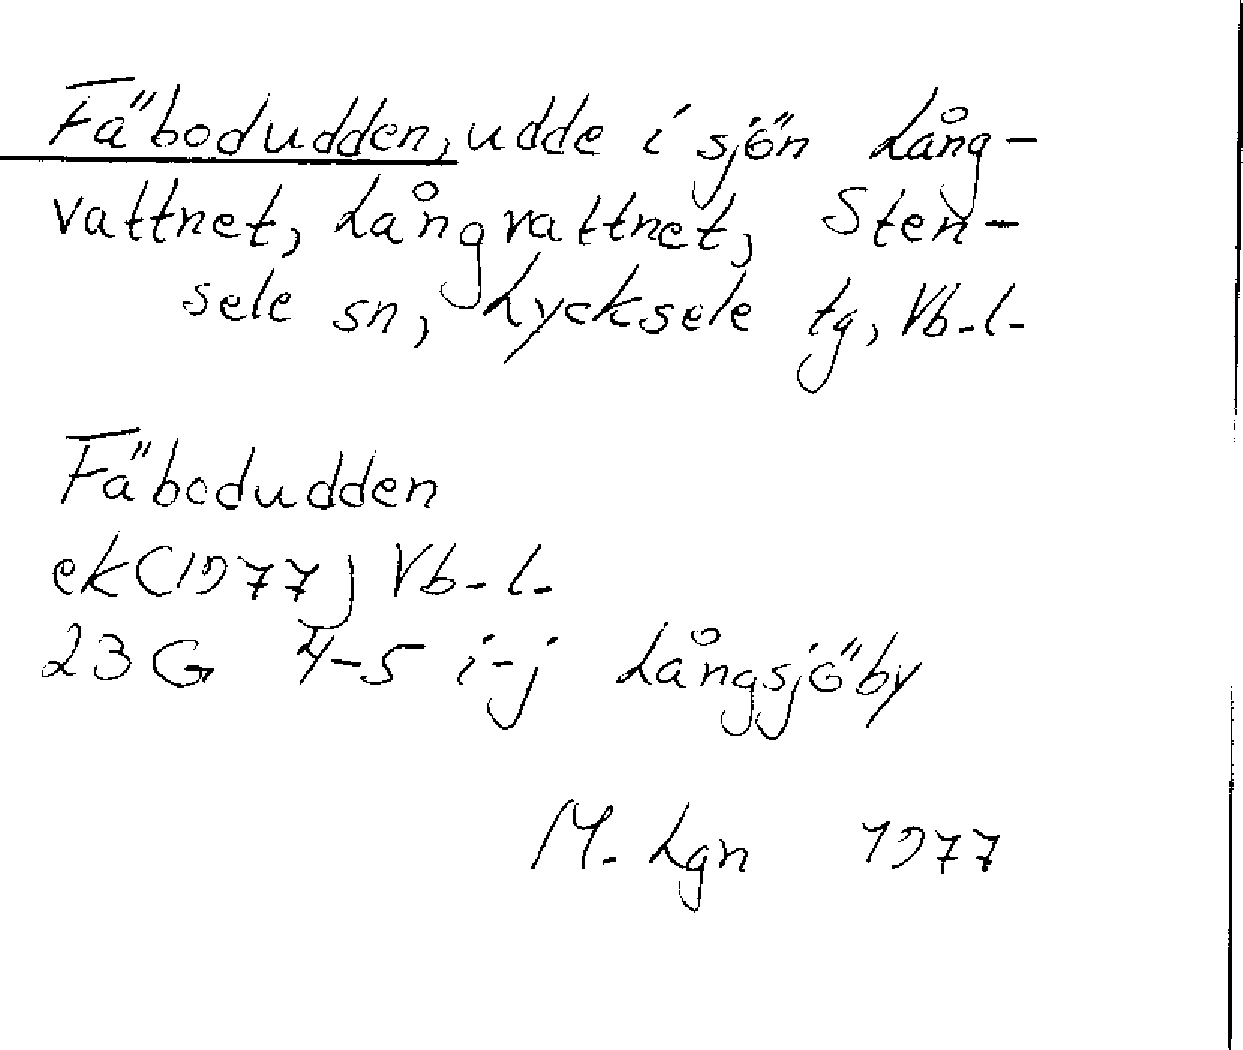 Fäbodudden, udde i sjön Lång-
vattnet, Långvattnet, Sten-
sele sn, Lycksele tg, Vb-l-
Fäbodudden
ek(1977) Vb-l-
23G 4-5 i-j Långsjöby
M. Lgn 1977